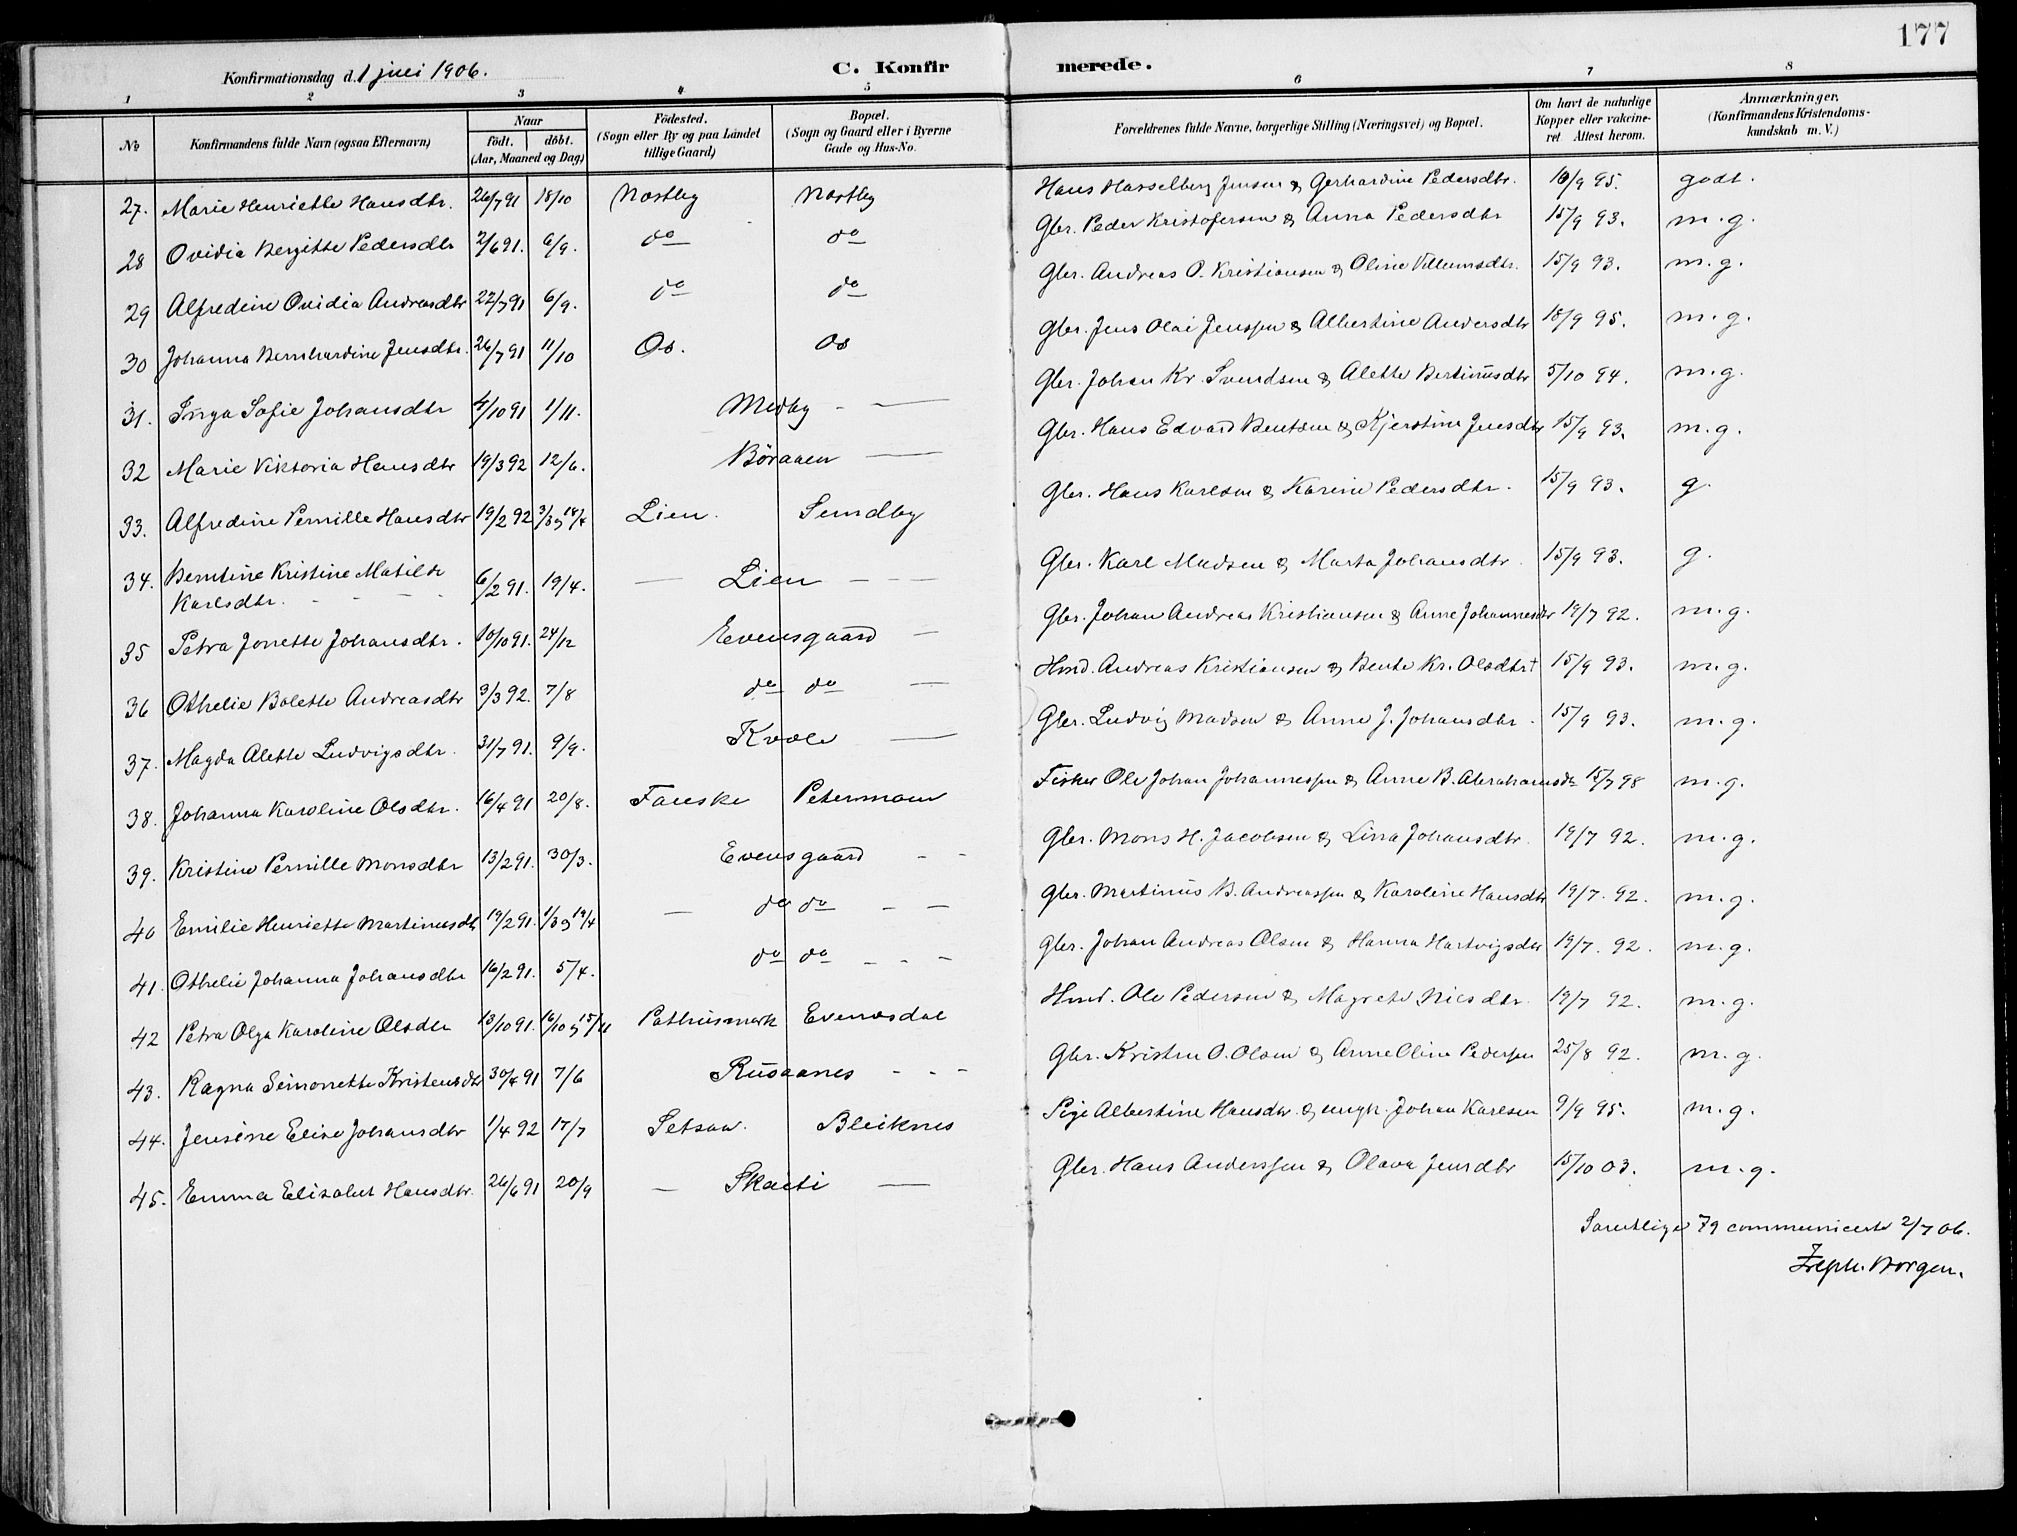 177
Konfirmationsdag d. 1 juli 1906. C. Konfirmerede.
1 2 3 4 5 6 7 8
No
Konfirmandens fulde Navn (ogsaa Efternavn)
Naar
födt. döbt.
(Aar, Maaned og Dag)
Födested.
(Sogn eller By og paa Landet
tillige Gaard)
Bopæl.
(Sogn og Gaard eller i Byerne
Gade og Hus-No.
Forældrenes fulde Navne, borgerlige Stilling (Næringsvei) og Bopæl.
Om havt de naturlige
Kopper eller vakcine-
ret Attest herom.
Anmærkninger.
(Konfirmandens Kristendoms-
kundskab m. V.)
27. Marie Henriette Hansdtr. 26/7 91 18/10 Nostby Nostby Hans Hasselberg Jensen & Gerhardine Pedersdtr. 10/9 95. godt.
28 Ovidia Bergitte Pedersdtr 2/6 91. 6/9. do do Gbr. Peder Kristofersen & Anna Pedersdtr 15/9 93. m.g.
29 Alfredine Ovidia Andreasdtr 22/7 91 6/9. do do Gbr. Andreas O. Kristiansen & Oline Villumsdtr. 15/9 93. m.g.
30 Johanna Bernhardine Jensdtr. 26/7 91 11/10 Os. Os Gbr. Jens Olai Jenssen & Albertine Andersdtr 18/9 95. m.g.
31. Inga Sofie Johansdtr 4/10 91 1/11. Medby - — Gbr. Johan Kr. Svendsen & Alette Bertinusdtr 5/10 94. m.g.
32 Marie Viktoria Hansdtr 19/3 92 12/6. Böraaen — Gbr. Hans Edvard Bentsen & Kjerstine Jensdtr 15/9 93. m.g.
33. Alfredine Pernille Hansdtr 19/2 92 3/3 & 18/4 Lien. Sundby Gbr. Hans Karlsen & Karine Pedersdtr. 15/9 93. g.
34. Berntine Kristine Matilde
Karlsdtr. 6/2 91. 19/4. — Lien — — Gbr. Karl Madsen & Marta Johansdtr. 15/9 93. g.
35 Petra Jonette Johansdtr. 10/10 91. 24/12 Evensgaard — Gbr. Johan Andreas Kristiansen & Anne Johannesdtr 19/7 92. m.g.
36 Othelie Bolette Andreasdtr 3/3 92. 7/8 do do — Hmd. Andreas Kristiansen & Bente Kr. Olsdtr† 15/9 93. m.g.
37. Magda Alette Ludvigsdtr. 31/7 91. 9/9. Kvale — Gbr. Ludvig Madsen & Anne J. Johansdtr. 15/9 93. m.g.
38. Johanna Karoline Olsdtr. 16/4 91 20/8. Fauske Petermoen Fisker Ole Johan Johannessen & Anne B. Abrahamsdtr 15/7 98 m.g.
39. Kristine Pernille Monsdtr 13/2 91. 30/3. Evensgaard - - Gbr. Mons H. Jacobsen & Lina Johansdtr. 19/7 92. m.g.
40 Emilie Henriette Martinusdtr 19/2 91. 1/3 & 19/4 — do do - - Gbr. Martinus B. Andreassen & Karoline Hansdtr 19/7. 92. m.g.
41. Othelie Johanna Johansdtr 16/2 91. 5/4. do do - - - Gbr. Johan Andreas Olsen & Hanna Hartvigsdtr 19/7. 92. m.g.
42 Petra Olga Karoline Olsdtr 13/10 91. 16/10 & 15/11 Pothusmark Evensdal Hmd. Ole Pedersen & Magrete Nilsdtr. 19/7 92. m.g.
43. Ragna Simonette Kristensdtr 30/4 91 7/6 Rusaanes - - - Gbr. Kristen O. Olsen & Anne Oline Pedersen 25/8 92. m.g.
44. Jensine Elise Johansdtr 1/4 92 17/7 Setsaa. Bleiknes Pige Albertine Hansdtr. & ungk. Johan Karlsen 9/9 95. m.g.
45. Emma Elisabet Hansdtr. 26/6 91 20/9 — Skaiti — Gbr. Hans Anderssen & Olava Jensdtr 15/10 03. m.g.
Samtlige 79 communicerte 2/7 06.
Zeph. Borgen.